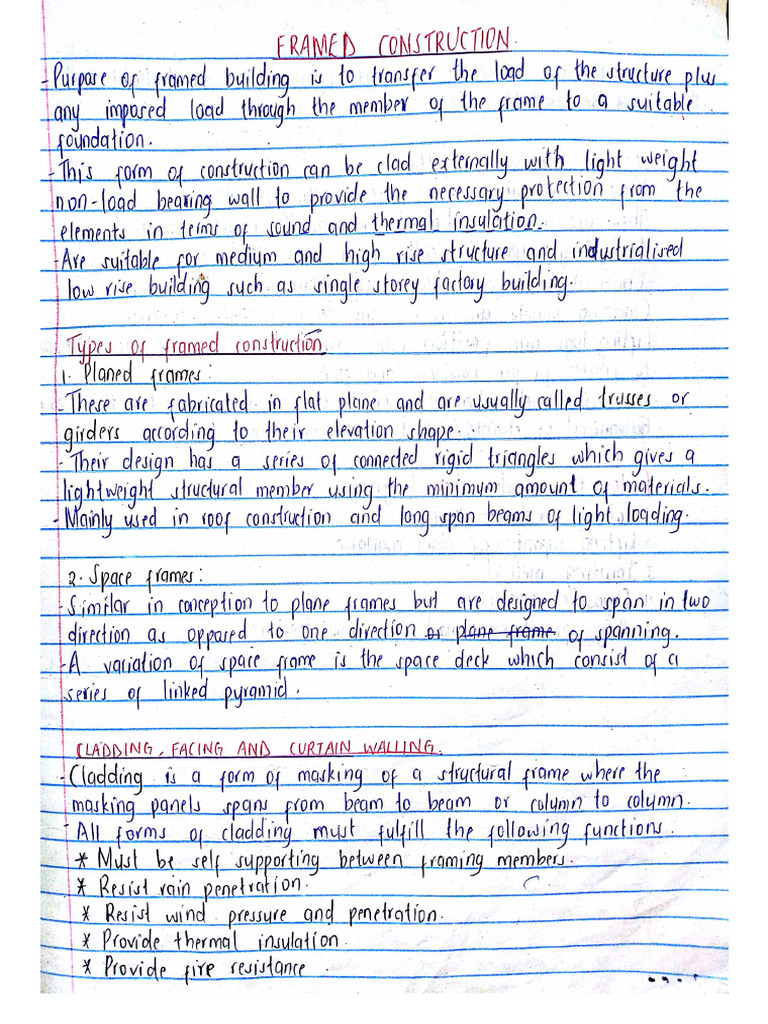 FRAMED CONSTRUCTION.
- Purpose of framed building is to transfer the load of the structure plus
any imposed load through the member of the frame to a suitable
foundation.
- This form of construction can be clad externally with light weight
non-load bearing wall to provide the necessary protection from the
elements in terms of sound and thermal insulation.
- Are suitable for medium and high rise structure and industrialised
low rise building such as single storey factory building.
Types of framed construction
1. Planed frames:
- These are fabricated in flat plane and are usually called trusses or
girders according to their elevation shape.
- Their design has a series of connected rigid triangles which gives a
lightweight structural member using the minimum amount of materials.
- Mainly used in roof construction and long span beams of light loading.
2. Space frames:
- Similar in conception to plane frames but are designed to span in two
direction as opposed to one direction or plane frame of spanning.
- A variation of space frame is the space deck which consist of a
series of linked pyramid.
CLADDING, FACING AND CURTAIN WALLING.
- Cladding is a form of masking of a structural frame where the
masking panels spans from beam to beam or column to column.
- All forms of cladding must fulfill the following functions.
* Must be self supporting between framing members.
* Resist rain penetration.
* Resist wind pressure and penetration.
* Provide thermal insulation.
* Provide fire resistance.